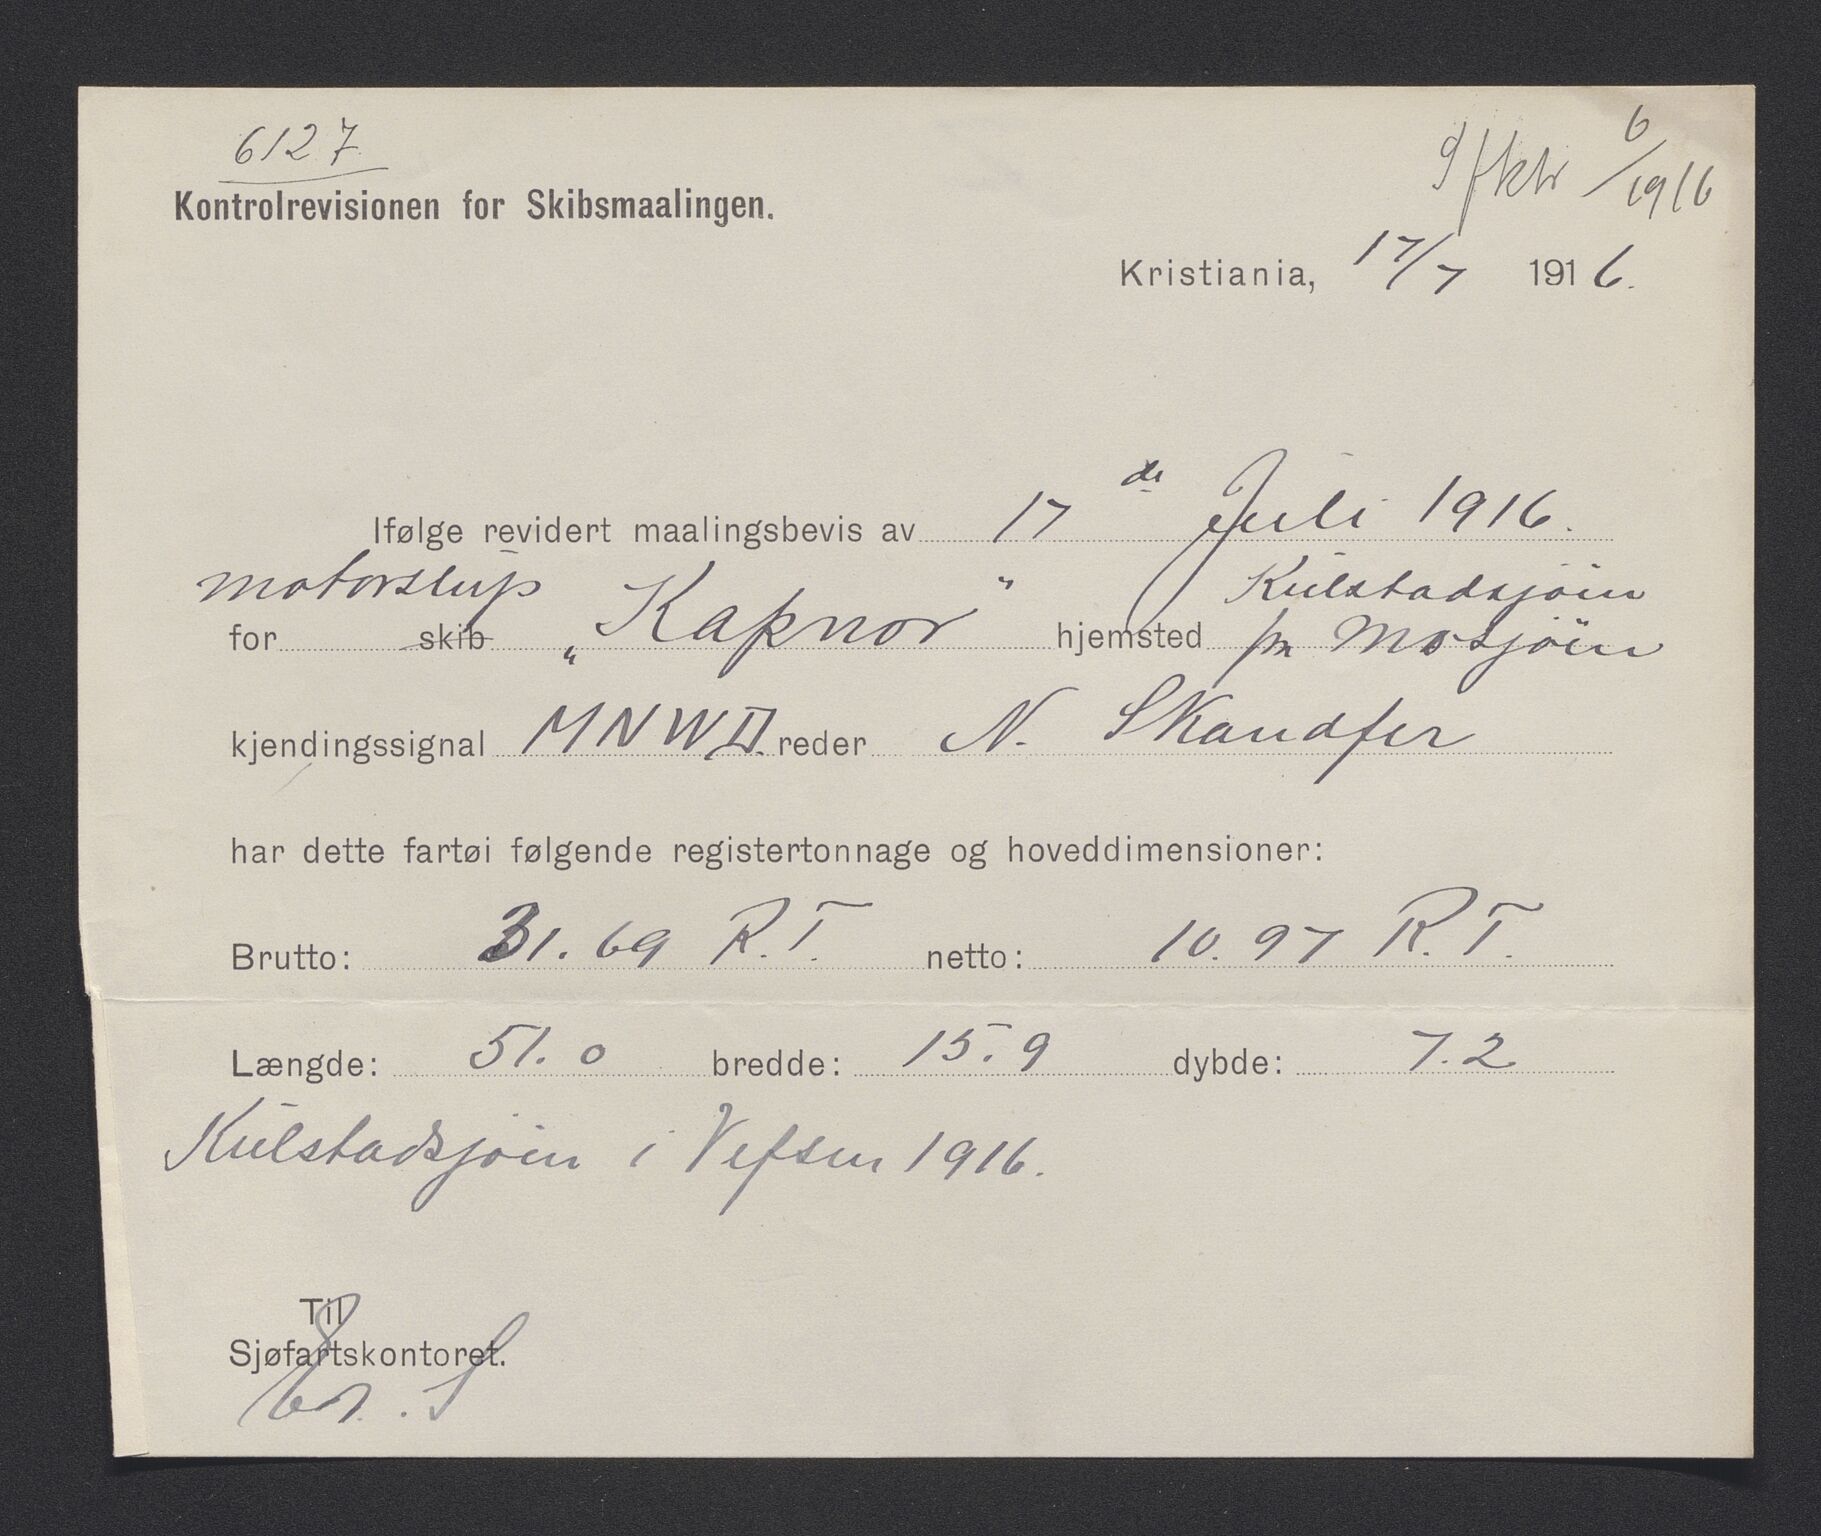 6127
Kontrolrevisionen for Skibsmaalingen.
Sfktr 6/1916
Kristiania, 17/7 1916.
Ifølge revidert maalingsbevis av 17 de Juli 1916.
motorslup Kulstadsjøen
for skib „Kapnor" hjemsted pr Mosjøen
kjendingssignal MNWD. reder N. Skandfer
har dette fartøi følgende registertonnage og hoveddimensioner:
Brutto: 31.69 R.T. netto: 10.97 R.T.
Længde: 51.0 bredde: 15.9 dybde: 7.2
Kulstadsjøen i Vefsen 1916.
Til
Sjøfartskontoret.